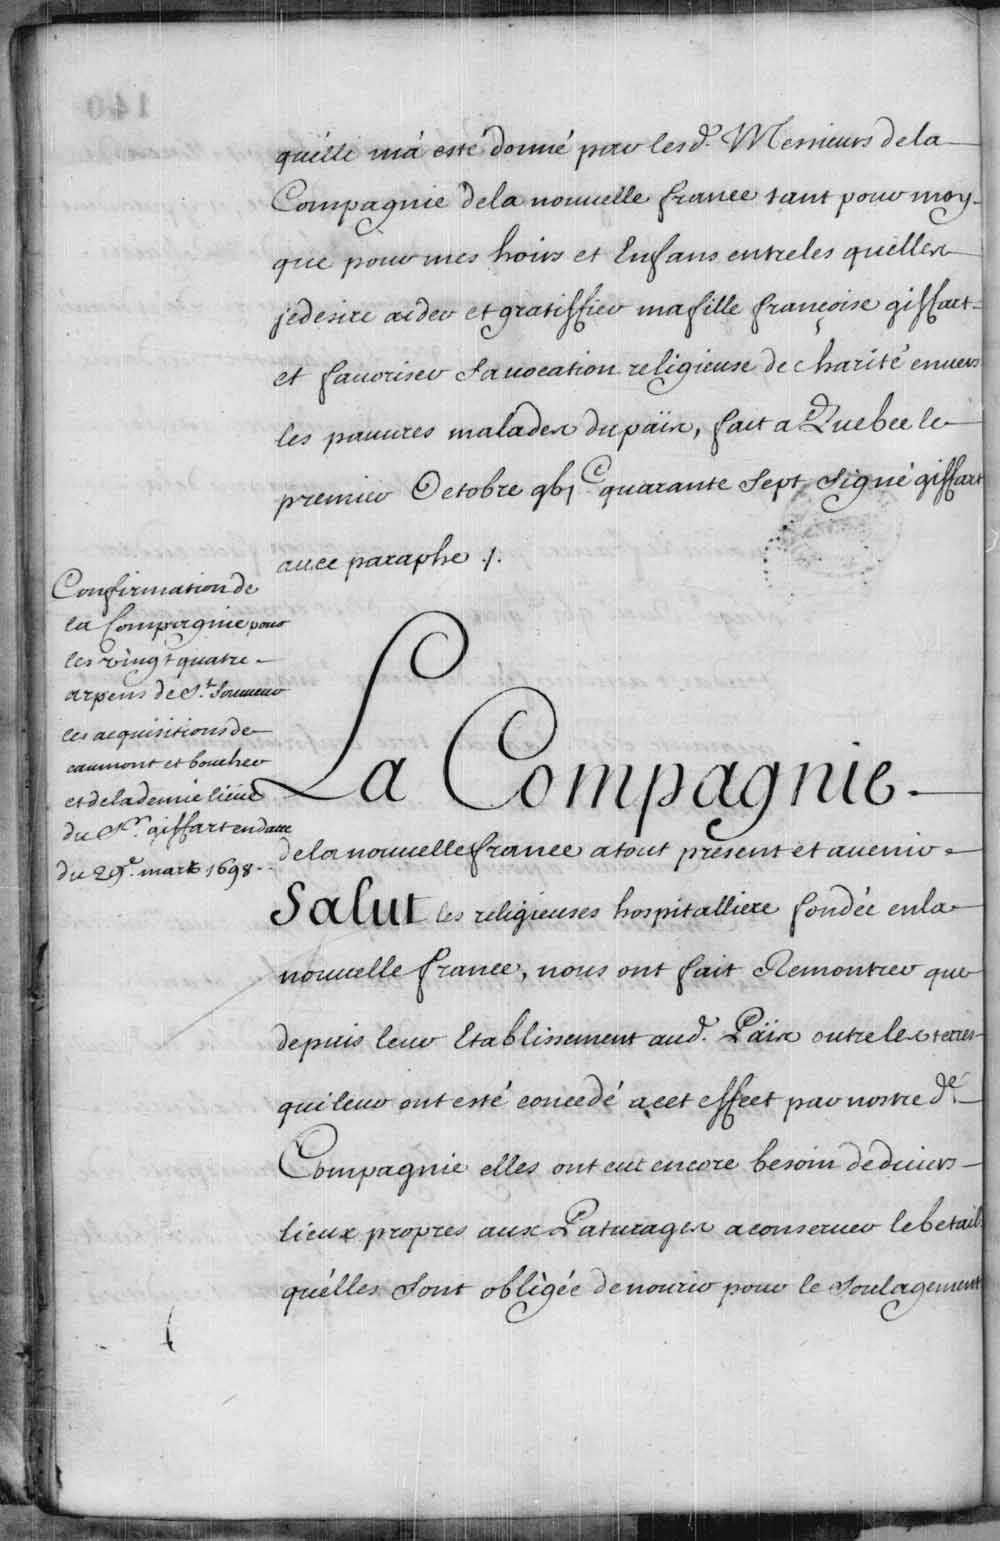 qu'elle m'a esté donné par lesd. Messieurs de la
Compagnie de la nouvelle france tant pour moy
que pour mes hoirs et Enfans entre les quelles
je desire aider et gratiffier ma fille françoise giffart
et favoriser sa vocation religieuse de charité envers
les pauvres malades du païs, fait a Quebec le
premier Octobre gbjc quarante Sept Signé giffart
avec paraphe ./.
Confirmation de
la Compagnie pour
les vingt quatre
arpens de St. Sauveur
les acquisitions de
caumont et boucher
et de la demie lieüe
du Sr. giffart en datte
du 29e. mars 1698.
La Compagnie
de la nouvelle france a tout présent et avenir
Salut les religieuses hospitalliere fondée en la
nouvelle france, nous ont fait Remontrer que
depuis leur Etablissement aud. Païs outre les terres
qui leur ont esté concédé a cet effect par nostre de.
Compagnie elles ont eut encore besoin de divers
lieux propres aux Paturages a conserver le betail
qu'elles sont obligée de nourir pour le soulagement